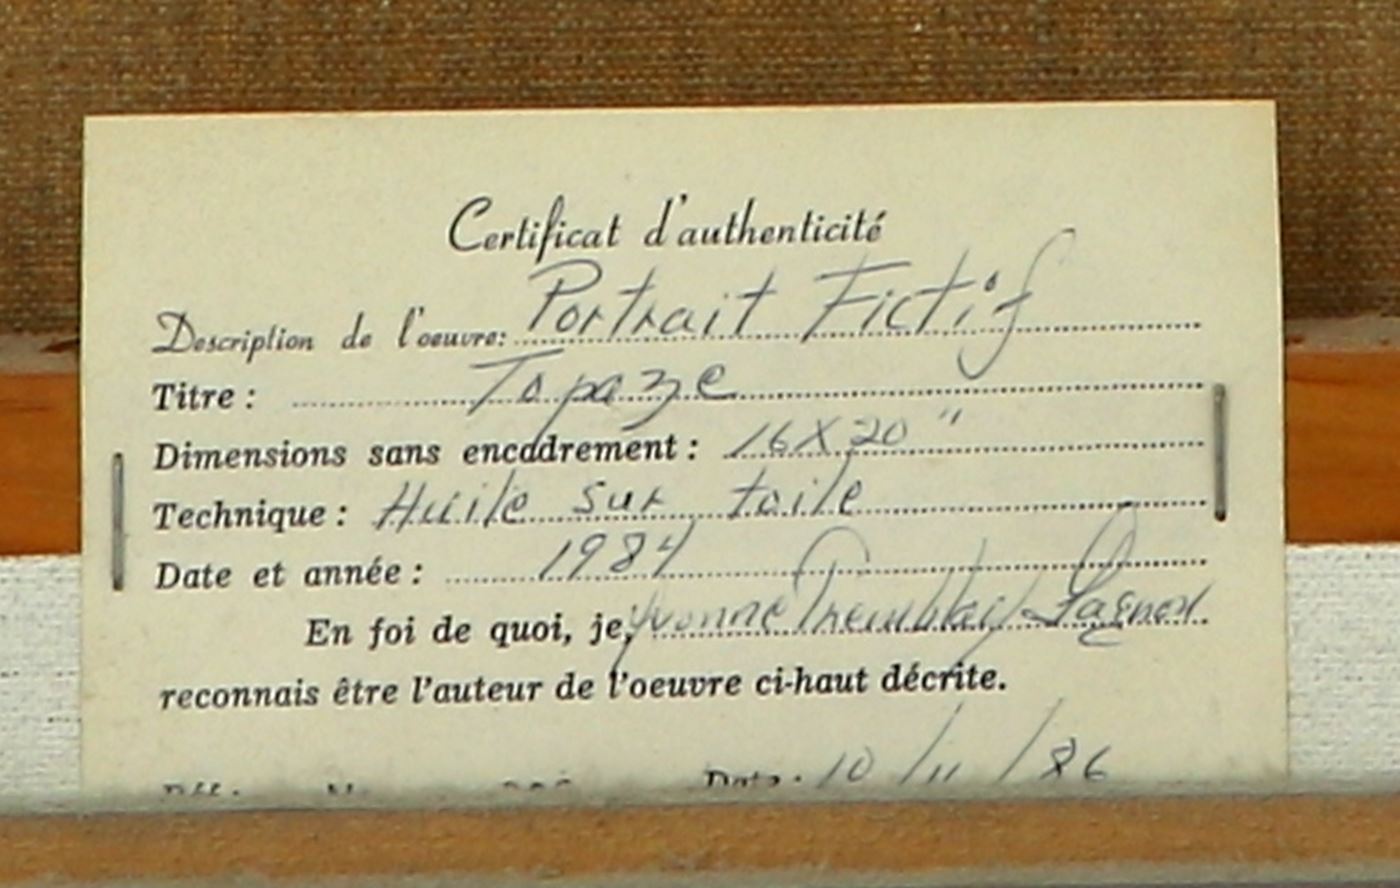 Certificat d'authenticité
Description de l'oeuvre: Portrait Fictif
Titre : Topaze
Dimensions sans encadrement : 16X20"
Technique : Huile sur toile
Date et année : 1984
En foi de quoi, je, Yvonne Tremblay Gagnon
reconnais être l'auteur de l'oeuvre ci-haut décrite.
Date : 10/11/86